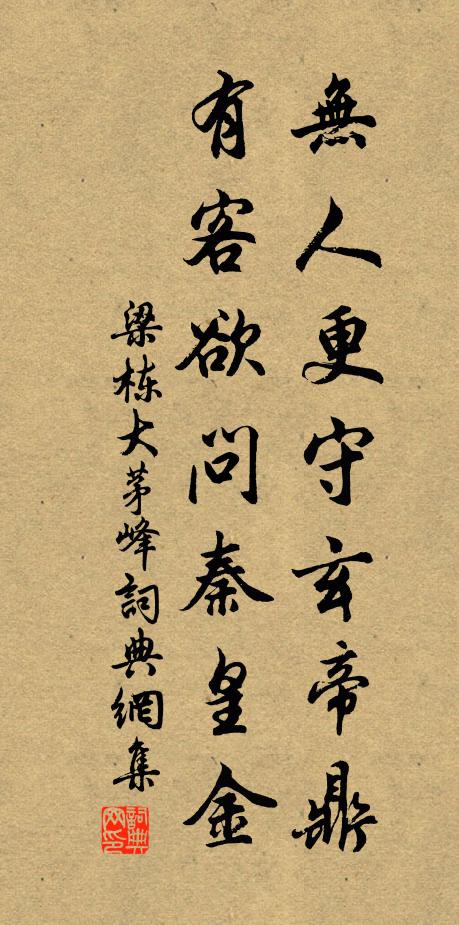 無人更守玄帝鼎
有客欲問秦皇金
梁栋大茅峰詞典網集
詞典网印